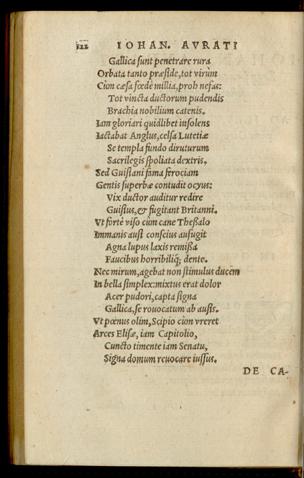 122 IOHAN. AVRATI
Gallica sunt penetrare rura
Orbata tanto præside, tot virûm
Cùm cæsa fœdè millia, proh nefas:
Tot vincta ductorum pudendis
Brachia nobilium catenis.
Iam gloriari quidlibet insolens
Iactabat Anglus, celsa Lutetiæ
Se templa fundo diruturum
Sacrilegis spoliata dextris.
Sed Guisiani fama ferociam
Gentis superbæ contudit ocyus:
Vix ductor auditur redire
Guisius, & fugitant Britanni.
Vt fortè viso cùm cane Thessalo
Immanis ausi conscius aufugit
Agna lupus laxis remissa
Faucibus horribiliq; dente.
Nec mirum, agebat non stimulus ducem
In bella simplex: mixtus erat dolor
Acer pudori, capta signa
Gallica, se reuocatum ab ausis.
Vt pœnus olim, Scipio cùm vreret
Arces Elisæ, iam Capitolio,
Cuncto timente iam Senatu,
Signa domum reuocare iussus.
DE CA-